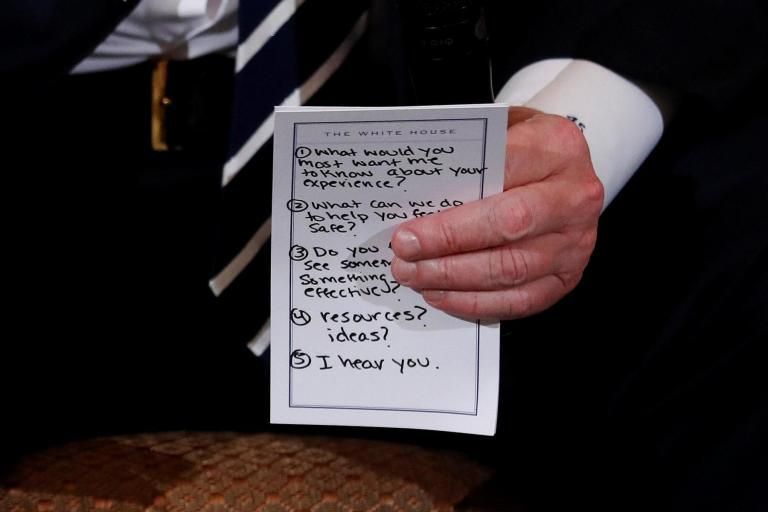 THE WHITE HOUSE
① What would you
most want me
to know about your
experience?
② What can we do
to help you
safe?
③ Do you
see
something
effective?
④ resources?
ideas?
⑤ I hear you.
45